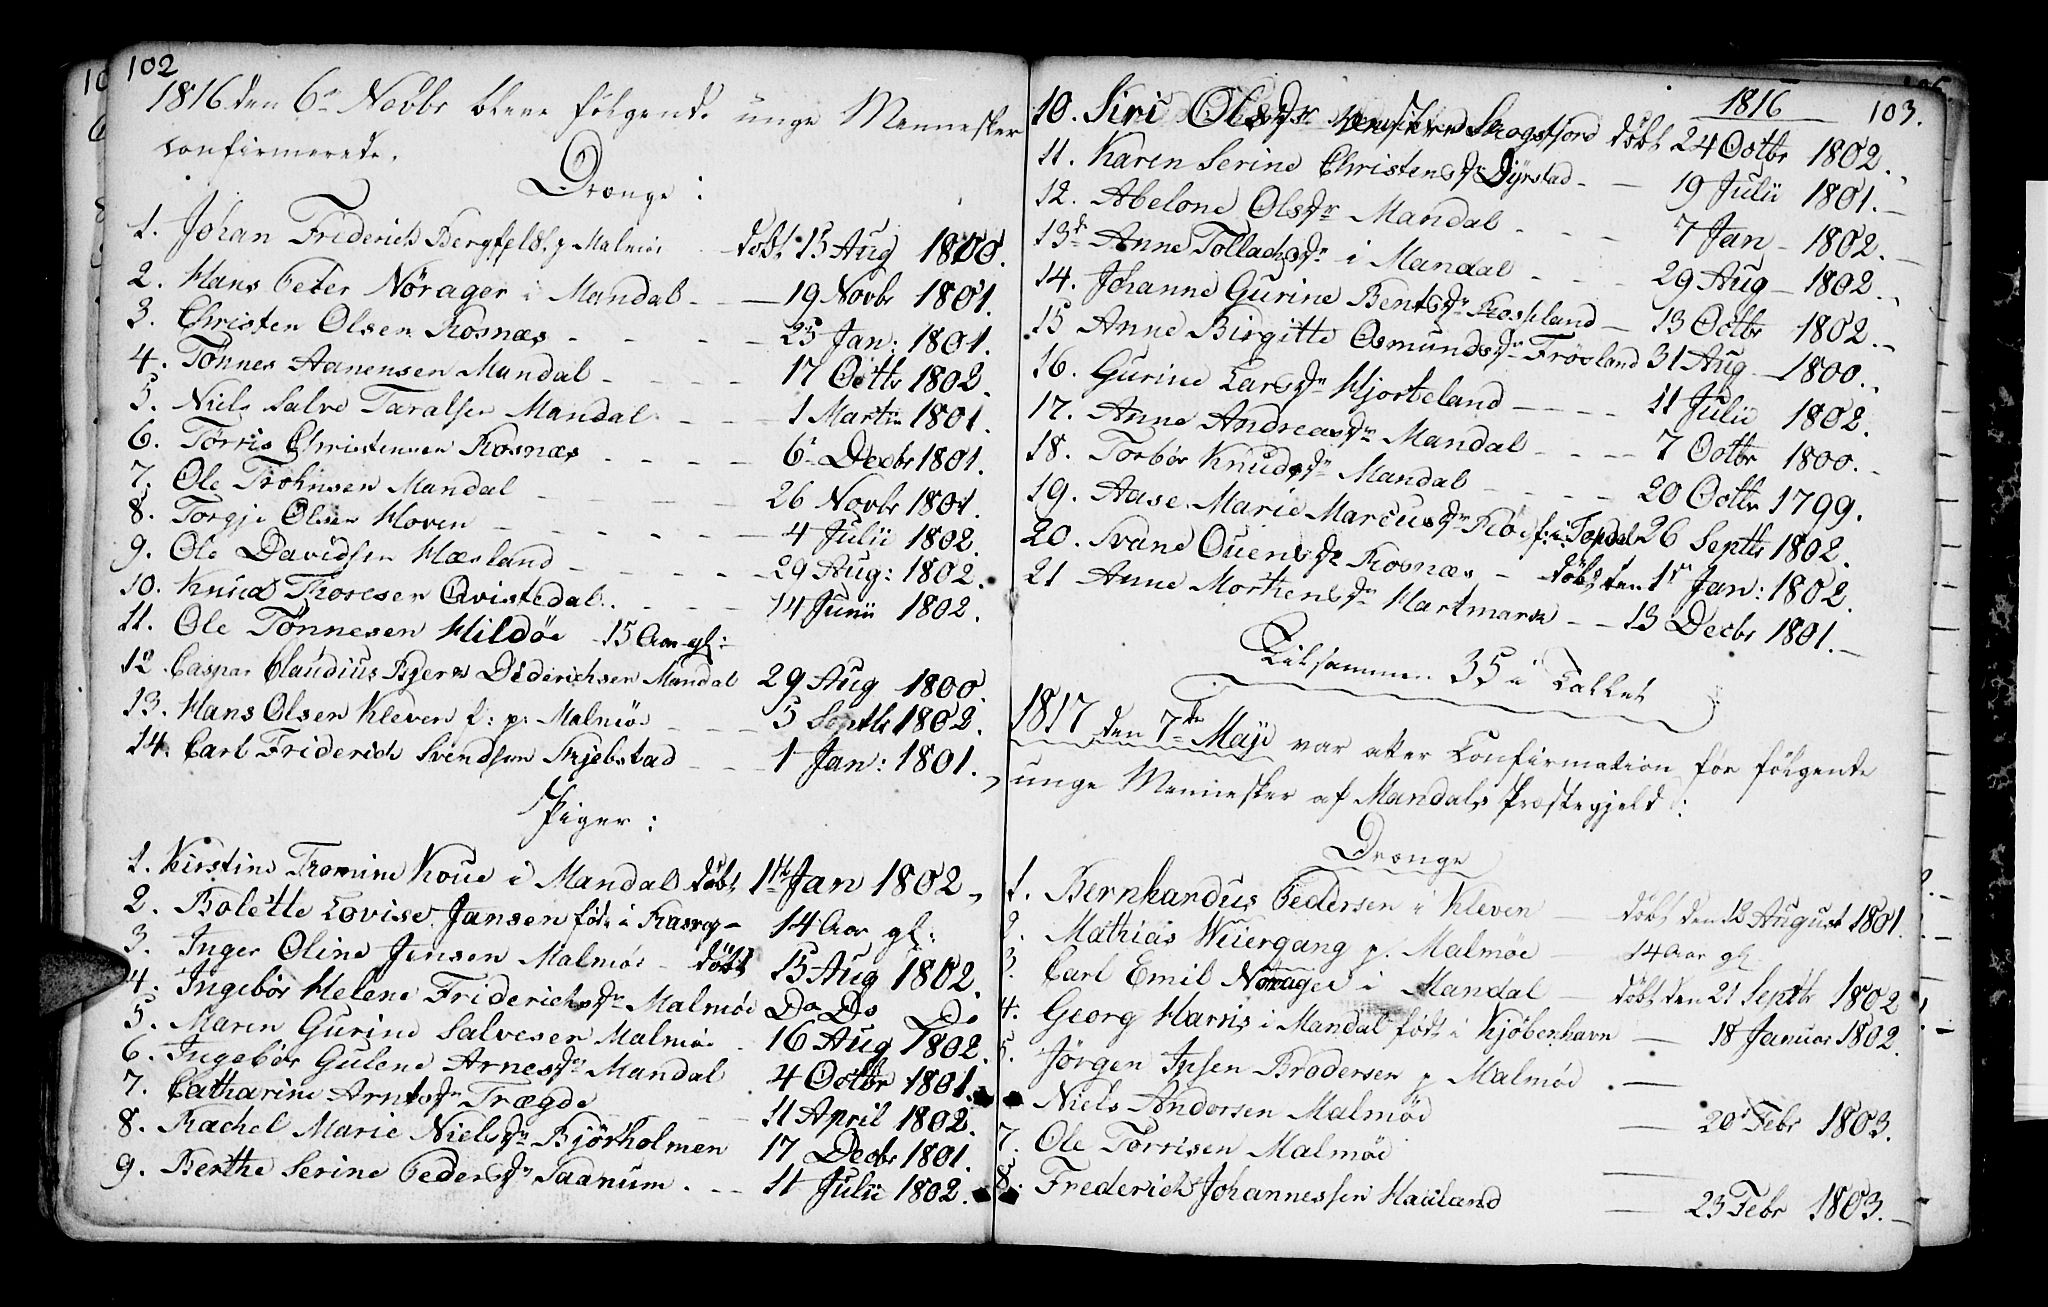 102
1816 den 6te Novbr bleve følgende unge Mennesker
confirmerede.
Drenge:
1. Johan Friderich Bergfeldt p Malmöe døbt 15 Aug 1800.
2. Hans Peter Nörager i Mandal - - 19 Novbr 1801.
3. Christen Olsen Rosnæs - - - - 25 Jan: 1801.
4. Tönnes Aanensen Mandal - - - - 17 Octbr 1802.
5. Niels Salve Taralsen Mandal - - - 1 Martii 1801.
6. Torris Christensen Rosnæs - - - - 6 Decbr 1801.
7. Ole Trohnsen Mandal - - - - 26 Novbr 1801.
8. Torgje Olsen Hoven - - - - - 4 Julii 1802.
9. Ole Davidsen Hæsland - - - - - 29 Aug: 1802.
10. Knud Thoresen Qvistedal - - - - 14 Junii 1802.
11. Ole Tönnesen Hildöe - 15 Aar gl:
12. Caspar Claudius Bjern Diderichsen Mandal 29 Aug 1800.
13. Hans Olsen Kleven f: p: Malmöe - - - 5 Septbr 1802.
14. Carl Friderich Svendsen Skjebstad - - - 1 Jan: 1801.
Piger:
1. Kirstine Tromine Koue i Mandal døbt 1ste Jan 1802,
2. Bolette Lovise Jansen født i - 14 Aar gl:
3. Inger Oline Jensen Malmöe - døbt 15 Aug 1802.
4. Ingebör Helene Friderichsdr Malmöe Do Do Do
5. Maren Gurine Salvesen Malmöe - 16 Aug 1802.
6. Ingebör Gulene Arnesdr Mandal 4 Octbr 1801.
7. Catharine Arntsdr Trægde - - 11 April 1802.
8. Rachel Marie Nielsdr Bjørholmen 17 Decbr 1801.
9. Berthe Serine Pedersdr Saanum. - - 11 Julii 1802.
1816 103.
10. Siri Olsdr Skogsfjord døbt 24 Octbr 1802.
11. Karen Serine Christensdr Dÿrstad - - 19 Julii 1801.
12. Abelone Olsdr Mandal - - - 7 Jan - 1802.
13. Anne Tollachsdr i Mandal - - - 29 Aug - 1802.
14. Johanne Gurine Bentsdr Roseland - 13 Octbr 1802.
15 Anne Birgitte Osmundsdr Fröesland 31 Aug - 1800.
16. Gurine Larsdr Hjorteland - - - - 11 Julii 1802.
17. Anne Andreasdr Mandal - - - - 7 Octbr 1800.
18. Torbör Knudsdr Mandal - - - - 20 Octbr 1799.
19. Aase Marie Marcusdr Röe f: i Topdal 26 Septbr 1802.
20. Svane Ouensdr Rosnæs - døbt den 1ste Jan: 1802.
21 Anne Mortensdr Hartmark - - 13 Decbr 1801.
Tilsammen 35 i Tallet
1817 den 7de Maji var atter Confirmation for følgende
unge Mennesker af Mandals Præstegjeld:
Drenge
1. Bernhardus Pedersen i Kleven - døbt den 12 August 1801.
2. Mathias Weiergang p. Malmöe - 14 Aar gl.
3. Carl Emil Norager i Mandal - døbt den 21 Septbr 1802
4. Georg Harris i Mandal født i Kjøbenhavn - 18 Januar 1802.
5. Jörgen Ipsen Brodersen p Malmöe -
Niels Andersen Malmöe - 20 Febr 1803.
7. Ole Torrisen Malmöe -
8. Frederich Johannessen Haaland - 23 Febr 1803.